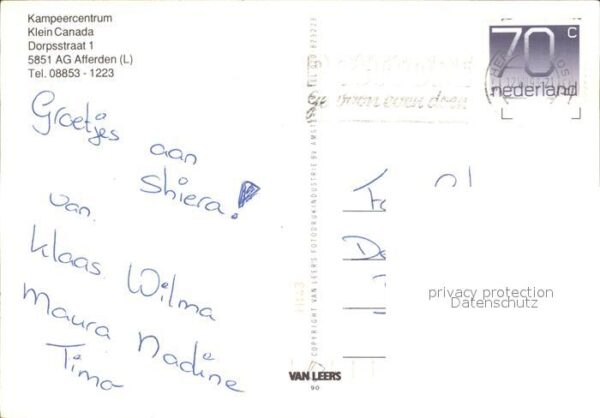 Kampeercentrum
Klein Canada
Dorpsstraat 1
5851 AG Afferden (L)
Tel. 08853 - 1223
Groetjes aan
Shiera!
van
Klaas Wilma
Maura Nadine
Timo
COPYRIGHT VAN LEERS FOTODRUKINDUSTRIE BV
VAN LEERS
90
70 c
nederland
privacy protection
Datenschutz